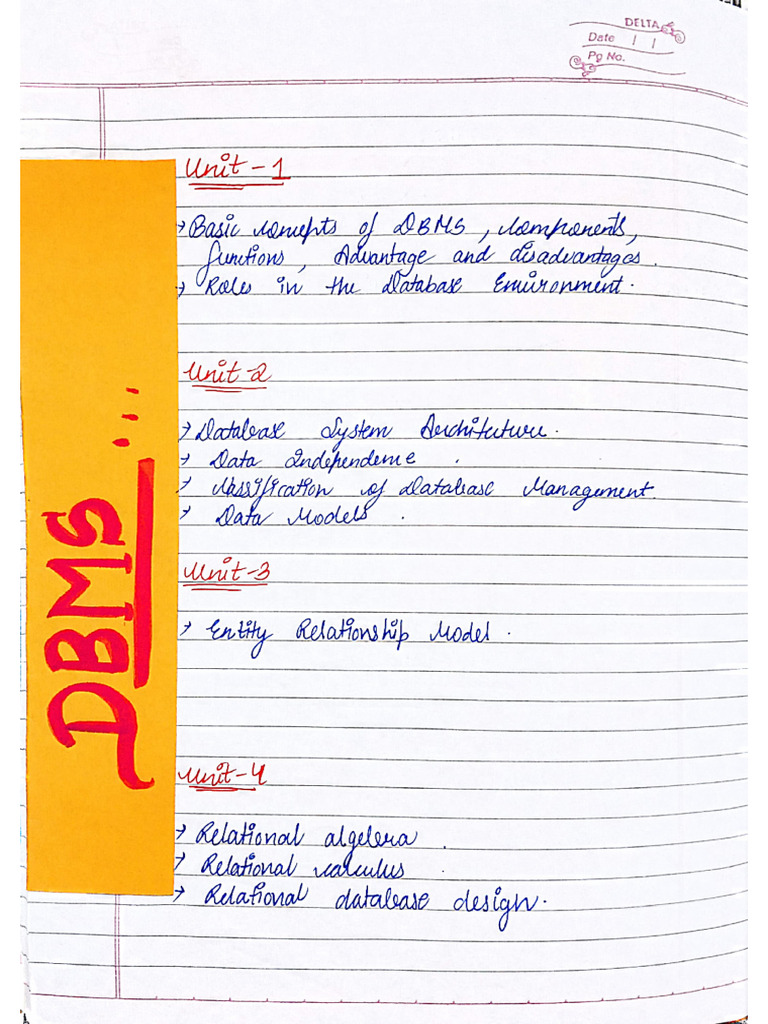 DELTA
Date / /
Pg No.
Unit - 1
→ Basic concepts of DBMS, components,
functions, Advantage and disadvantages.
→ Roles in the Database Environment.
Unit-2
→ Database System Architecture.
→ Data Independence.
→ Classification of Database Management.
→ Data Models.
DBMS...
Unit-3
→ Entity Relationship Model.
Unit-4
→ Relational algebra.
→ Relational calculus.
→ Relational database design.